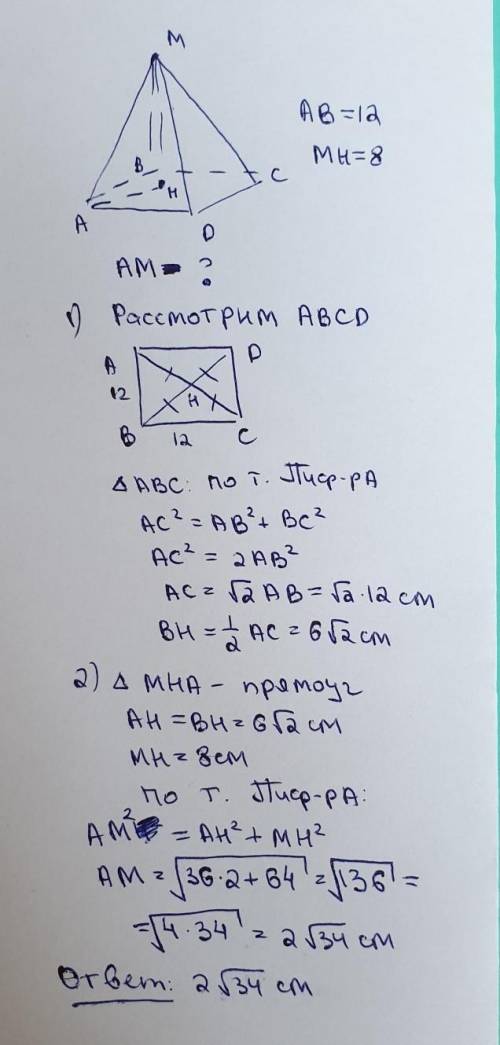 M
AB=12
MH=8
B
H
C
A
D
AM - ?
1) Рассмотрим ABCD
A
D
12
H
B
12
C
△ ABC: по т. Пиф-ра
AC² = AB² + BC²
AC² = 2AB²
AC = √2 AB = √2·12 см
BH = 1/2 AC = 6√2 см
2) △ MHA - прямоуг
AH = BH = 6√2 см
MH = 8см
по т. Пиф-ра:
AM² = AH² + MH²
AM = √36·2+64 = √136 =
= √4·34 = 2√34 см
Ответ: 2√34 см